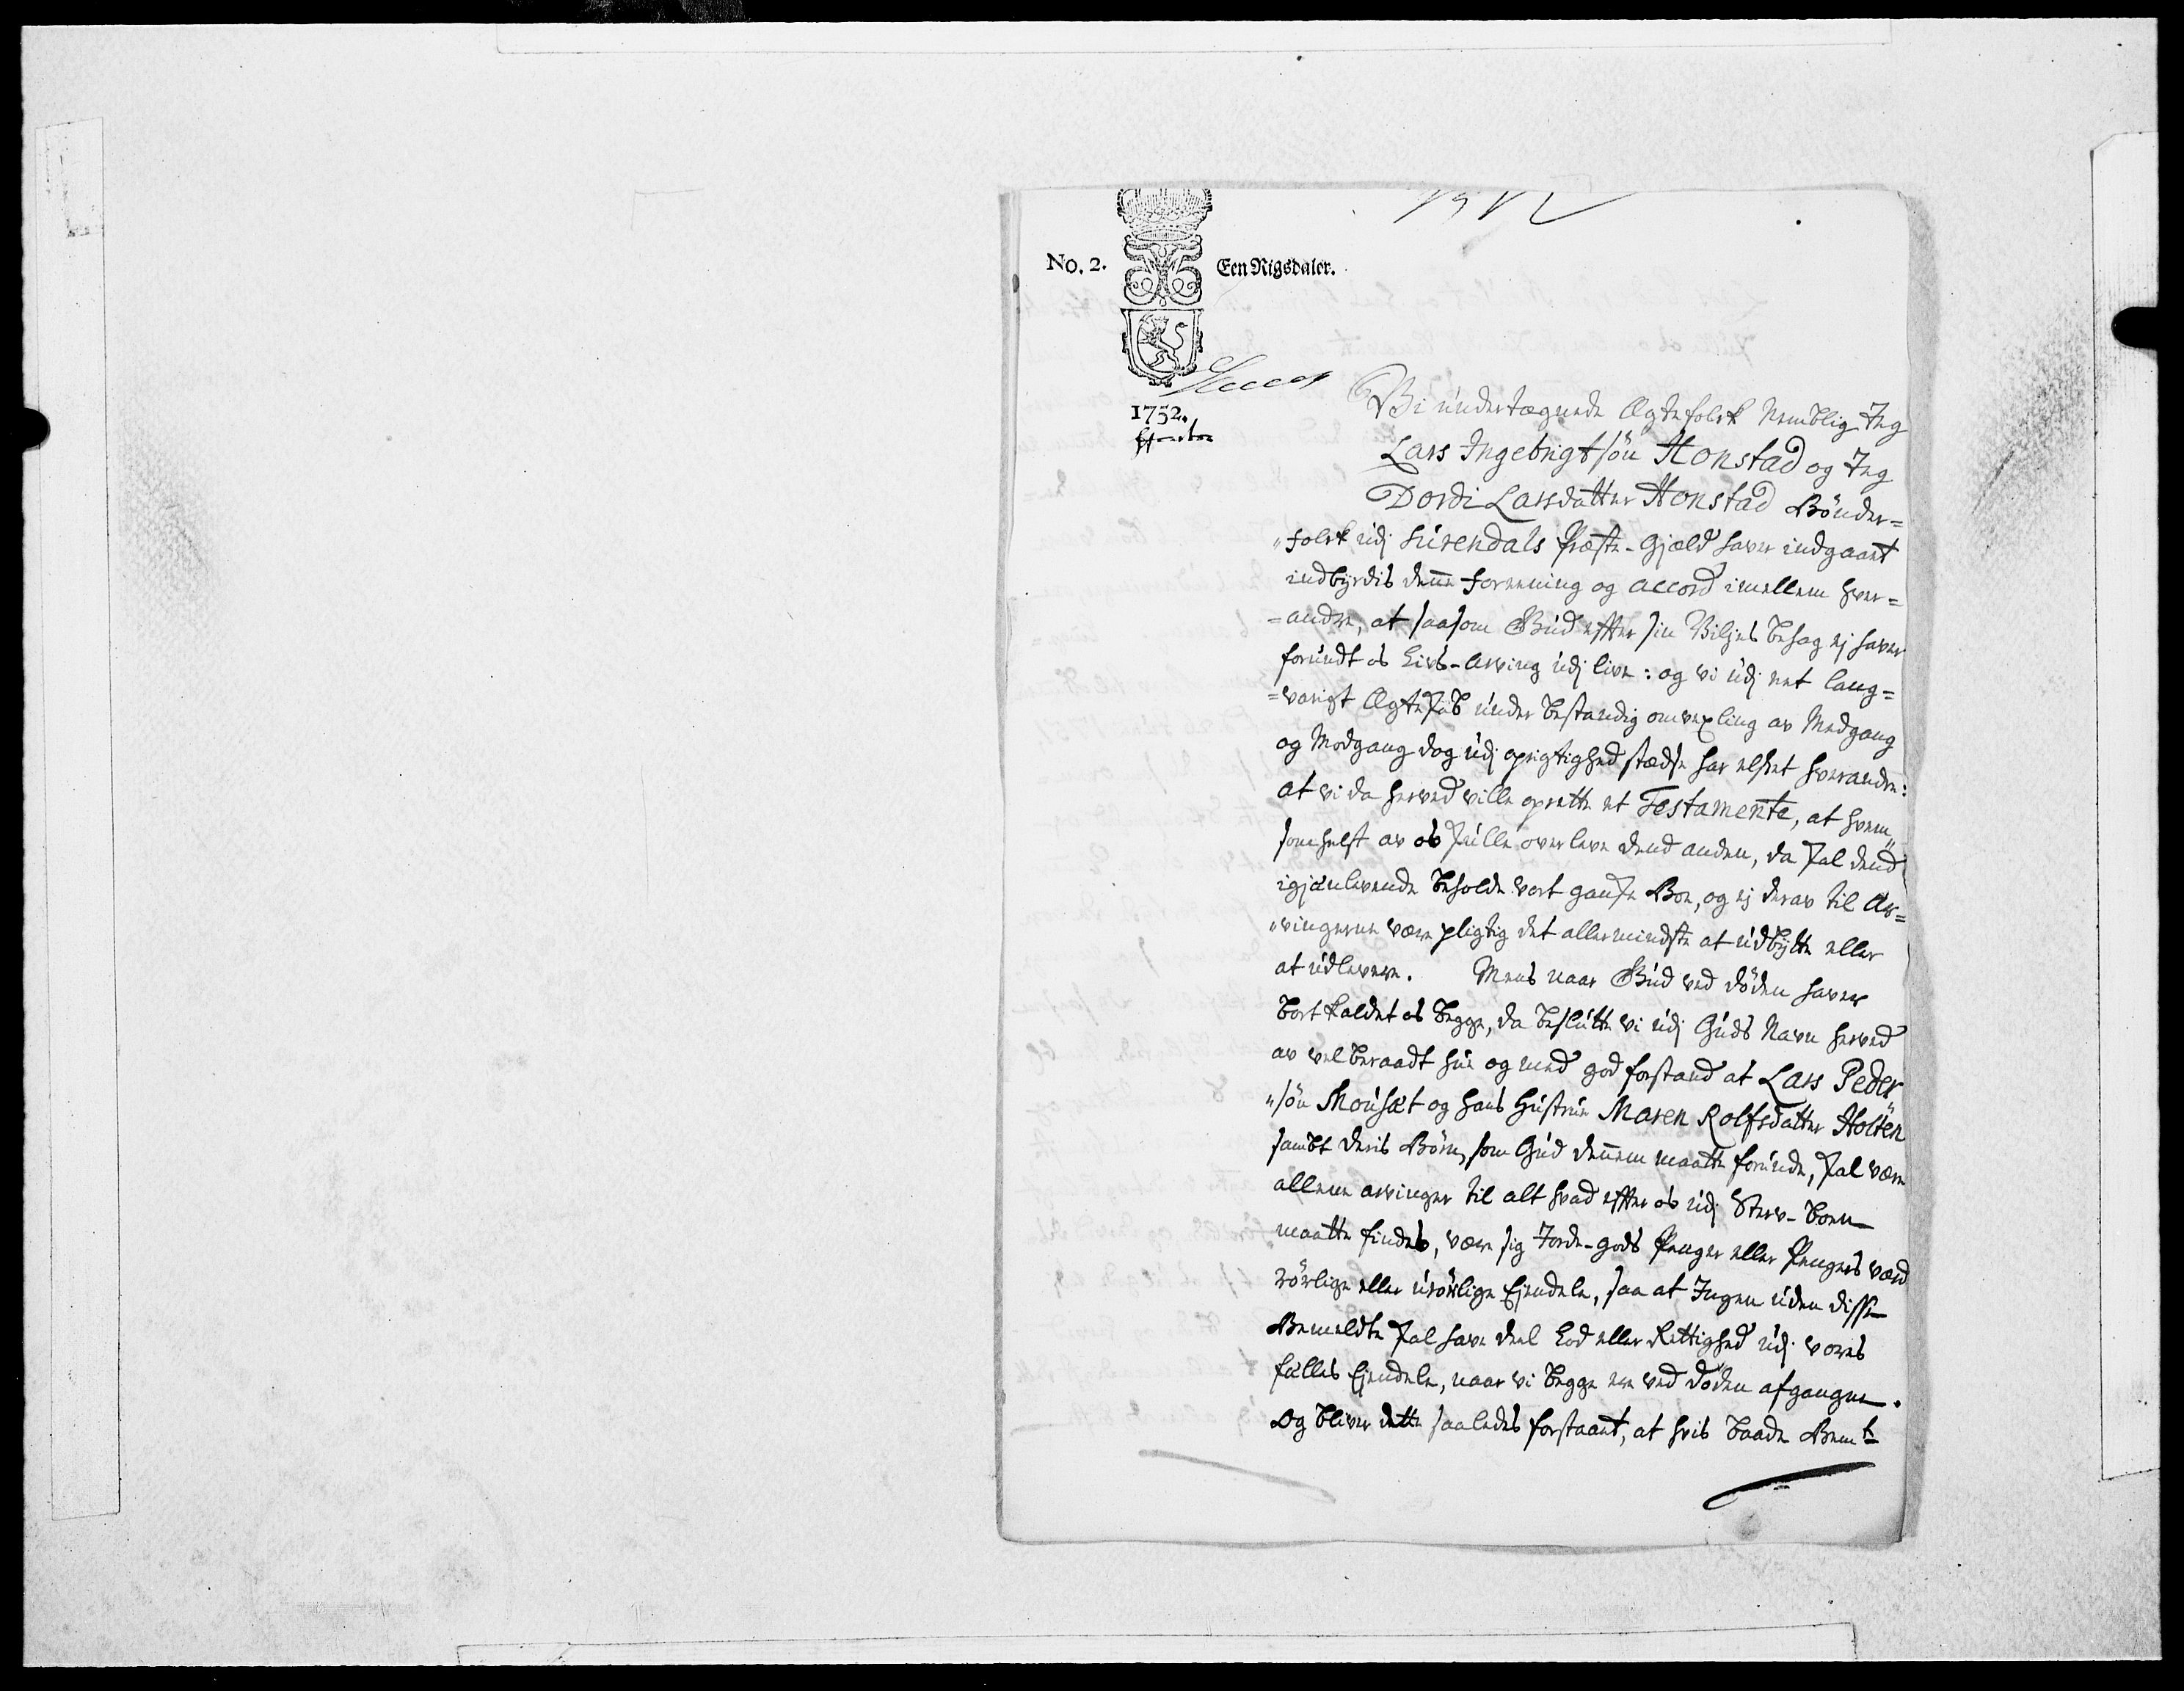 No. 2.
Een Rigsdaler.
1752.
Vi undertægnede Ægtefolck Nemblig Jeg
Lars Ingebrigtsøn Honstad og Jeg
Dordi Larsdatter Honstad Bønder=
„folck udj Surendals Præste-Gjæld haver indgaaet
indbyrdis denne foreening og accord imellem hver=
=andre, at saasom Gud effter sin Viljes behag ej haver
forundt os Livs-Arving udj live: og vi udj eet lang=
=varigt Ægteskab under bestandig omvexling av Medgang
og Modgang dog udj oprigtighed stædse har elsket hverandre:
at vi da herved ville oprette et Testamente, at hvem„
somhelst av os skulle overleve dend anden, da skal dend
igjænlevende beholde vort gandske Boe, og ej derav til Ar=
„vingerne være pligtig det allermindste at udbytte eller
at udlevere. Mens naar Gud ved døden haver
bortkaldet os begge, da beslutte vi udj Guds Navn herved
av velberaadt hue og med god forstand at Lars Peder„
„søn Mousæt og hans Hustrue Maren Rolfsdatter Holten
sambt deris Børn, som Gud dennem maatte forunde, skal være
alleene arvinger til alt hvad effter os udj Sterv-boen
maatte findes, være sig Jorde-gods Penger eller Pengers værd
rørlige eller urørlige Ejendele, saa at Ingen uden disse
Bemeldte skal have deel Lod eller Rettighed udj vores
fælles Ejendele, naar vi begge ere ved døden afgangne.
Og bliver dette saaledes forstaaet, at hvis baade Bemte